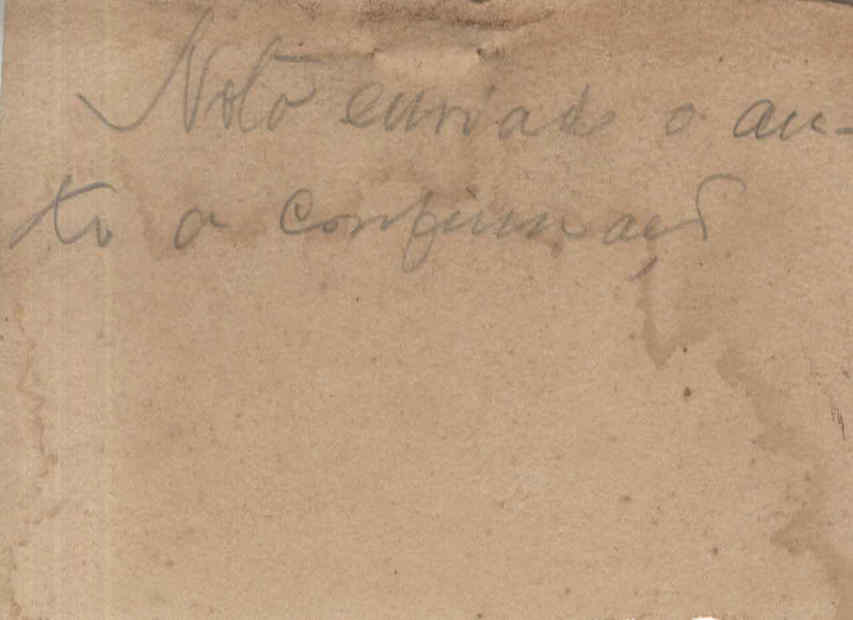 Noto enviado o au-
to a confirmação